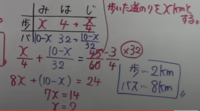 み は じ
歩 x 4 x/4
バス 10-x 32 10-x/32
歩いた道のりをxkmと
する。
x/4 + 10-x/32 = 45/60 = 3/4 ×32
8x + (10-x) = 24
7x = 14
x = 2
歩→2km
バス→8km